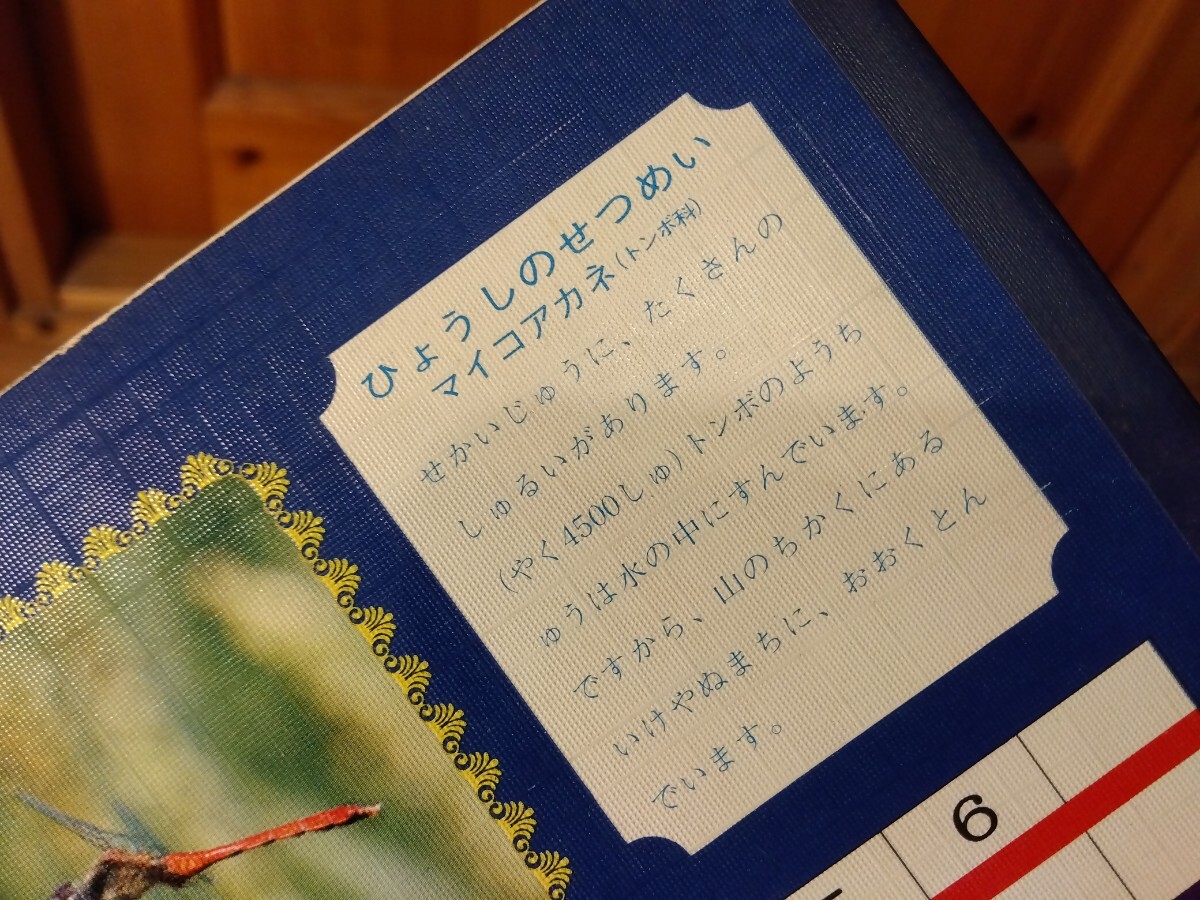 ひょうしのせつめい
マイコアカネ(トンボ科)
せかいじゅうに、たくさんの
しゅるいがあります。
(やく4500しゅ)トンボのようち
ゅうは水の中にすんでいます。
ですから、山のちかくにある
いけやぬまちに、おおくとん
でいます。
6